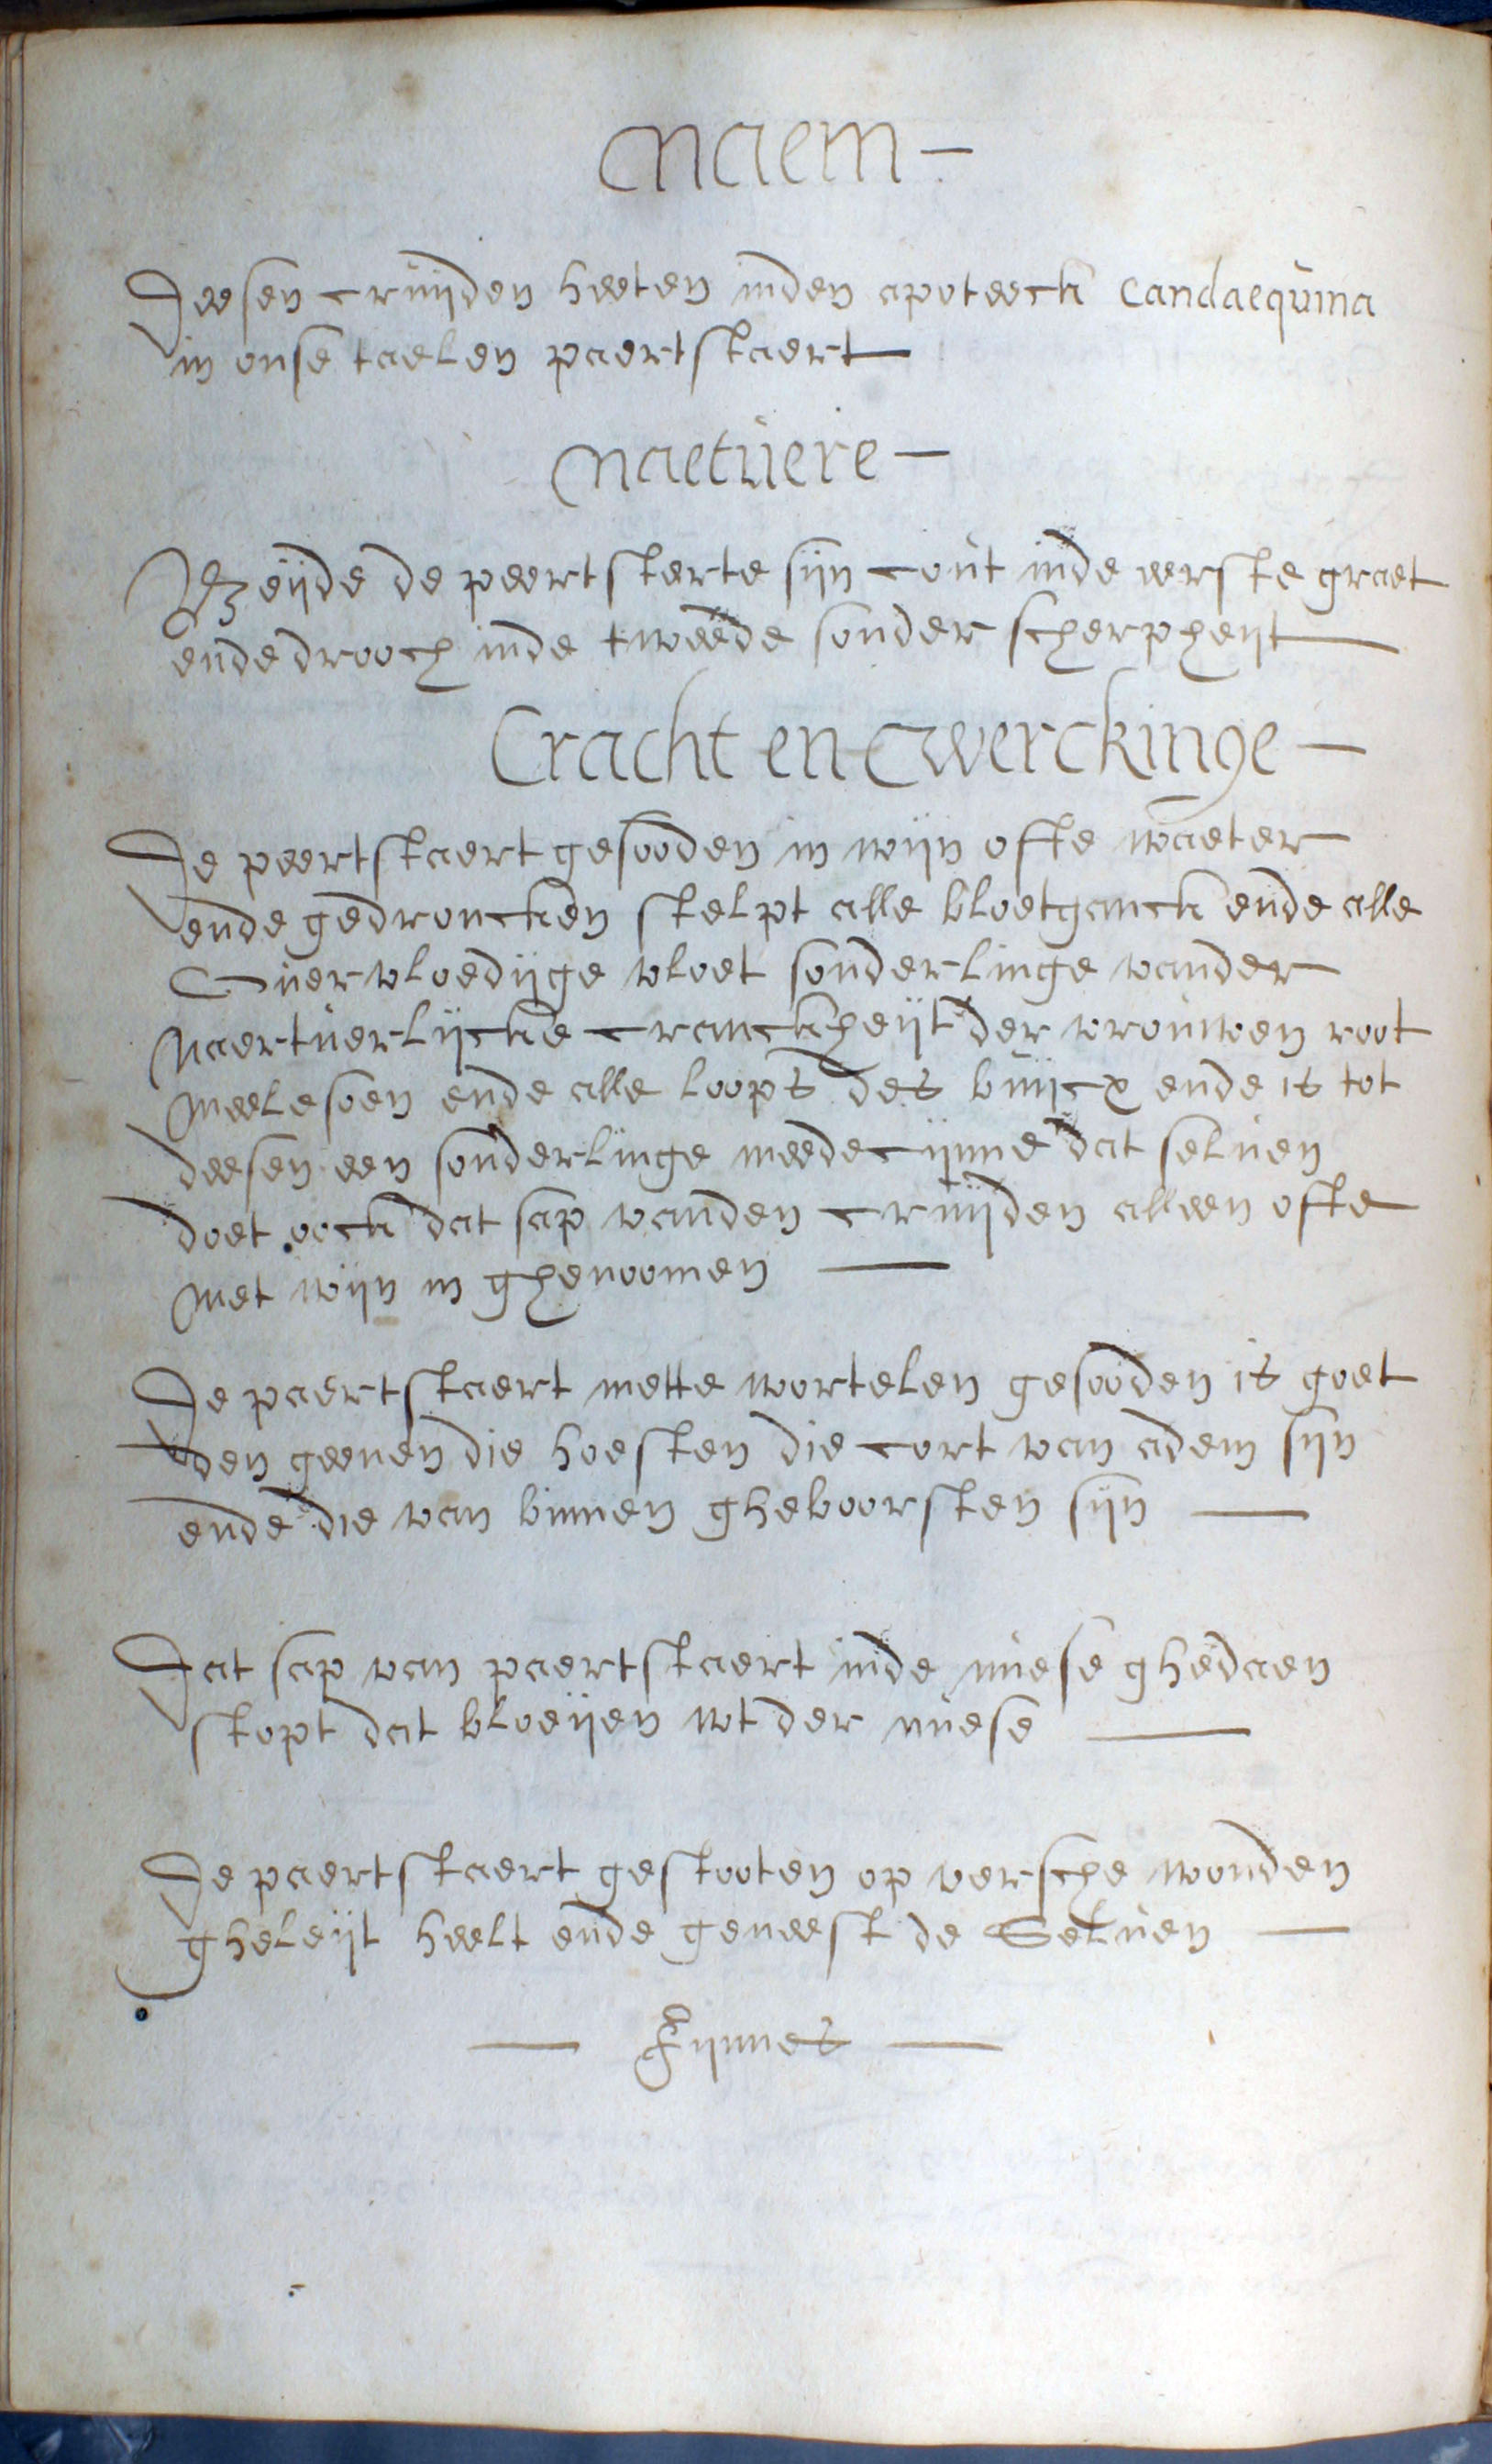 Naem —
Deesen cruijden heeten inden apoteeck Candaequina
in onse taelen paertstaert
Naetuere —
Beijde de peertsterte sijn cout inde eerste graet
ende drooch inde tweede sonder scherpheijt
Cracht en werckinge —
De peertstaert gesooden in wijn ofte waeter
ende gedroncken stelpt alle bloetganck ende alle
Overvloedijge vloet sonderlinge vander
Naertuerlijcke cranckheijt der vrouwen root
Meelesoen ende alle loops des buijcx ende is tot
deesen een sonderlinge meedecijnne dat seluen
doet oock dat sap vanden cruijden alleen ofte
Met wijn in ghenoomen —
De paertstaert mette wortelen gesooden is goet
den geenen die hoesten die cort van adem sijn
ende die van binnen gheboorsten sijn —
Dat sap van paertstaert inde nuese ghedaen
stopt dat bloeijen wt der nuese —
De paertstaert gestooten op versche wonden
gheleijt heelt ende geneest de Seluen —
— Fijnnes —